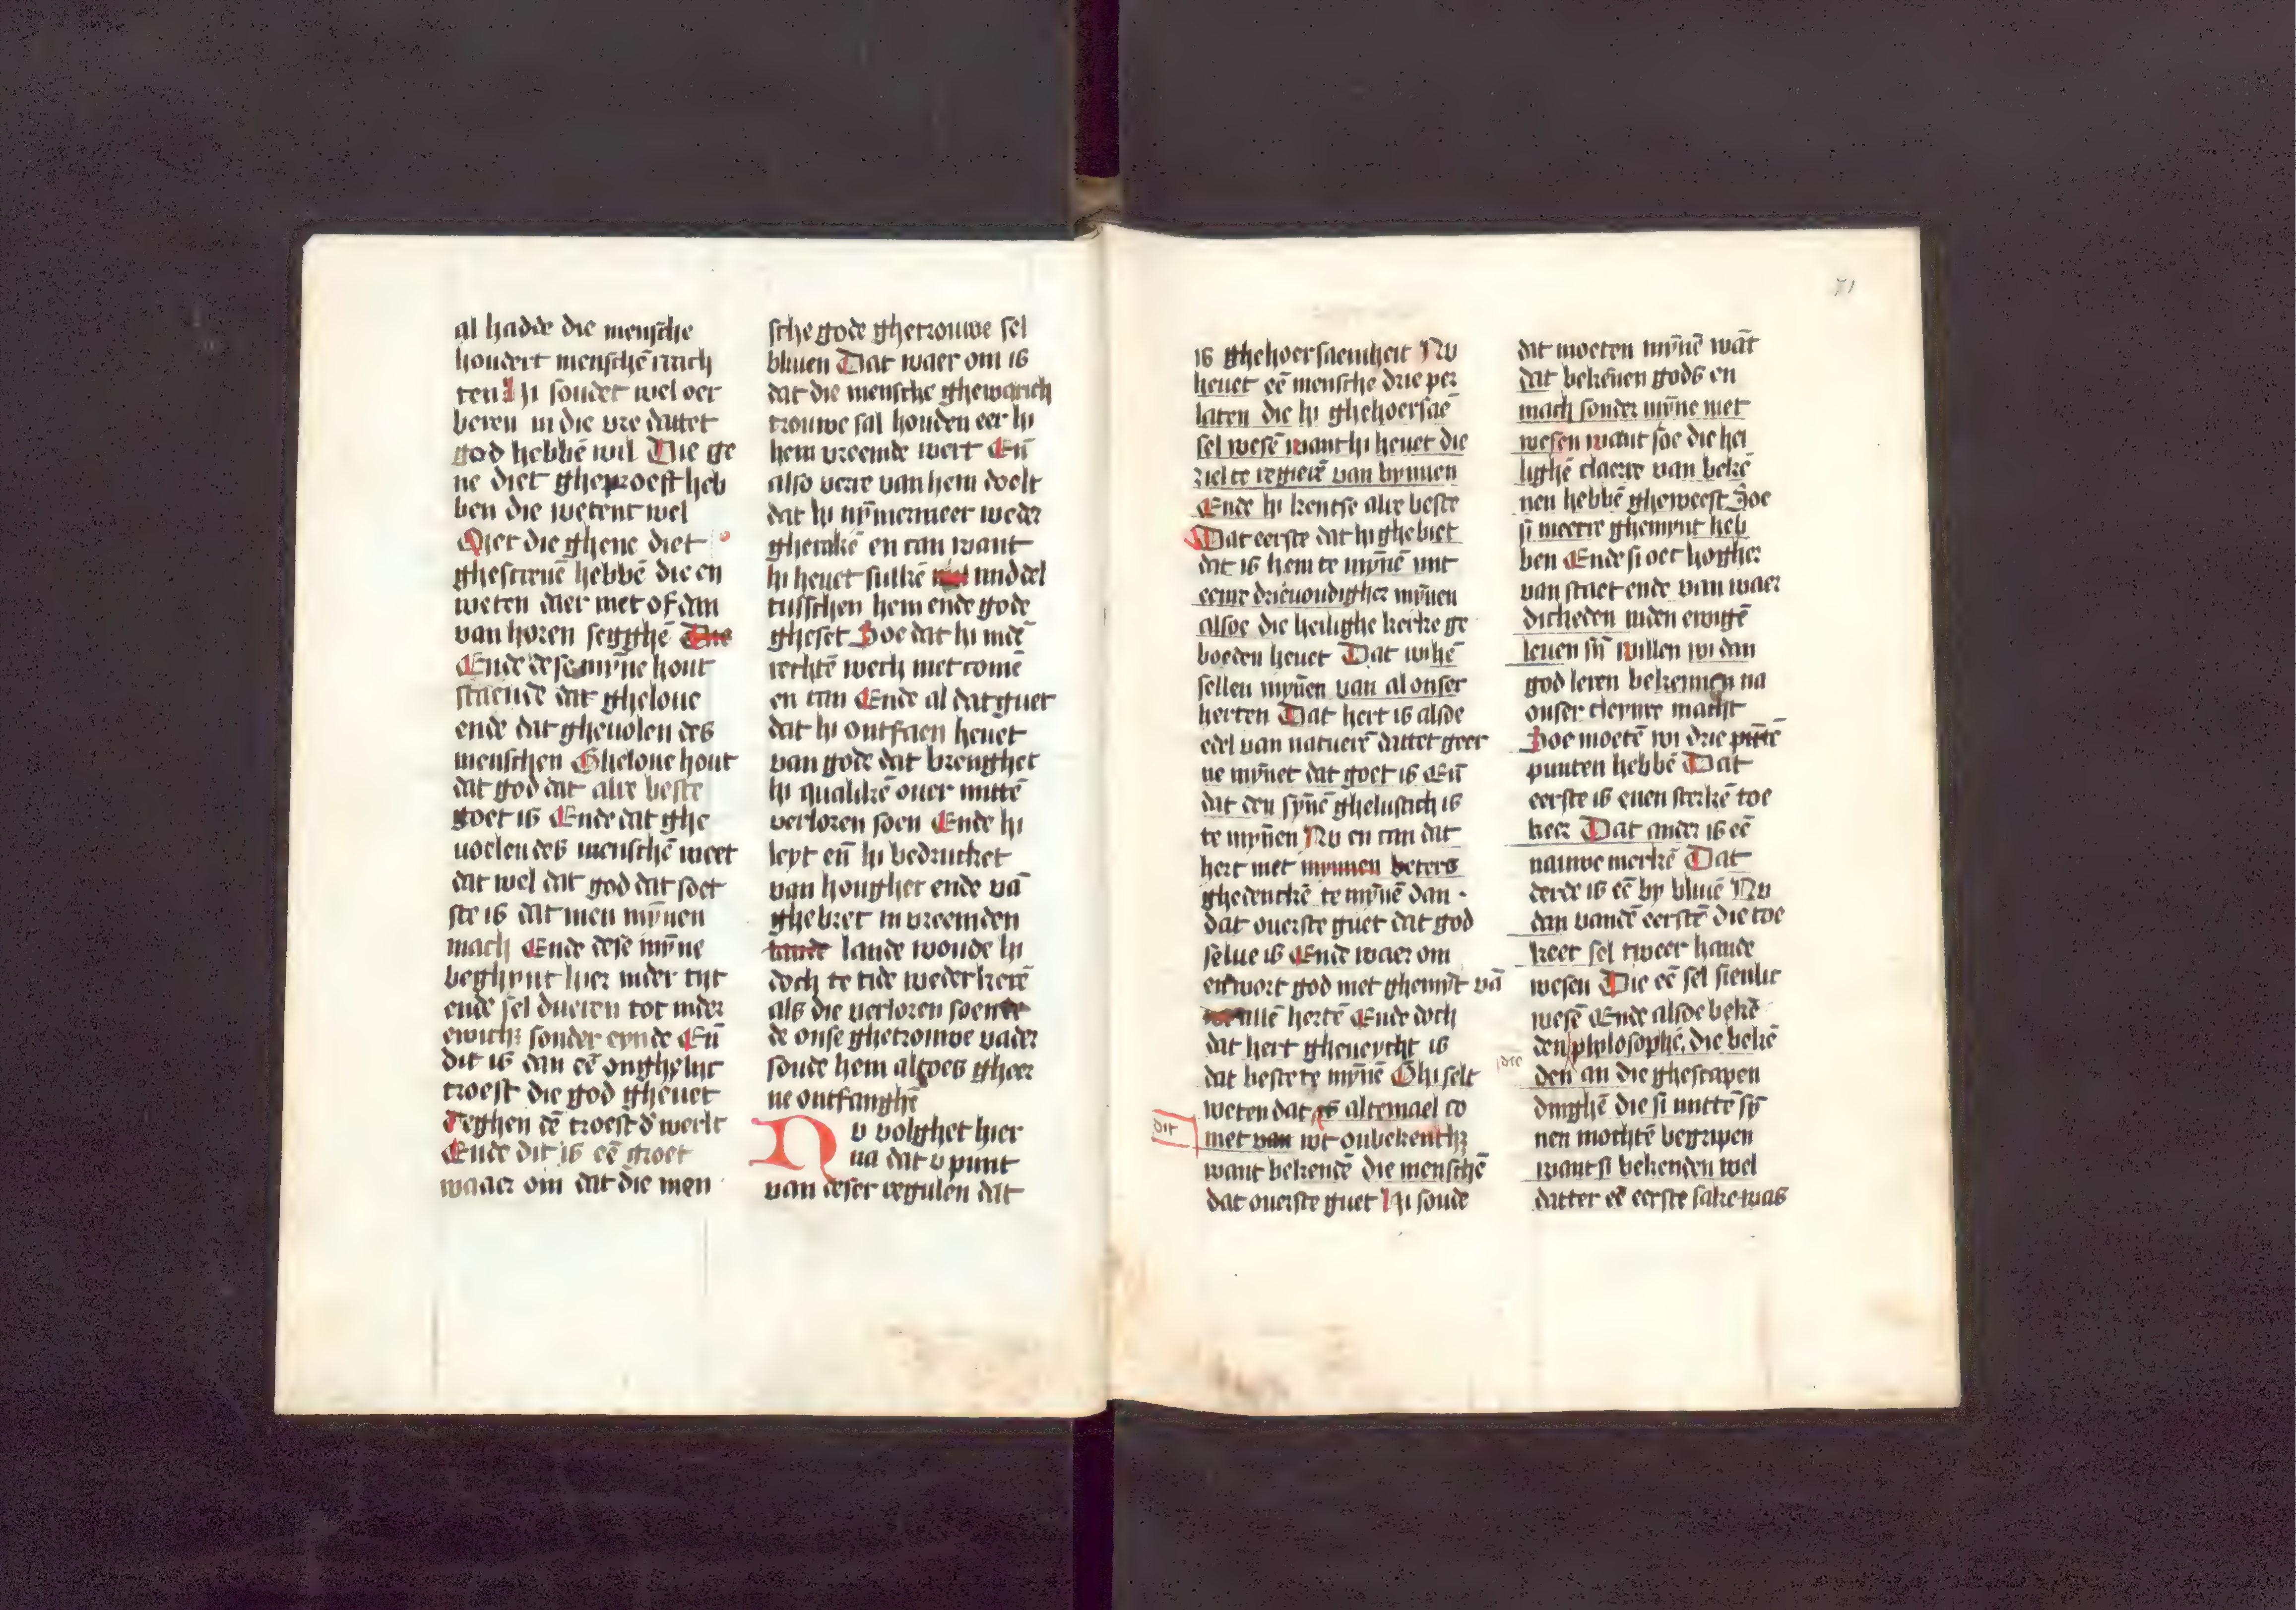 al hadde die mensche
hondert menschē crach
ten Hi soudet wel oer
beren in die vre dattet
god hebbē wil Die ge
ne diet gheproeft heb
ben die wetent wel
Mer die ghene diet
ghescreuē hebbē die en
weten daer niet of dan
van horen segghē Die
Ende dese mȳne hout
staende dat gheloue
ende dat gheuolen des
menschen Gheloue hout
dat god dat alre beste
goet is Ende dat ghe
uoelen des menschē weet
dat wel dat god dat soet
ste is dat men mȳnen
mach Ende dese mȳne
beghynt hier inder tijt
ende sel dueren tot inder
ewich sonder eynde Eñ
dit is dan eē onghelijc
troest die god gheuet
teghen dē troest d' werlt
Ende dit is eē groet
waaer om dat die men
sche gode ghetrouwe sel
bliuen Dat waer om is
dat die mensche ghewarich
trouwe sal houden eer hi
hem vreemde wert Eñ
also verre van hem doelt
dat hi nȳmermeer weder
gherakē en can want
hi heuet sulkē middel
tusschen hem ende gode
gheset Soe dat hi indē
rechtē wech niet comē
en can Ende al dat guet
dat hi ontfaen heuet
van gode dat brenghet
hi qualikē ouer mittē
verloren soen Ende hi
leyt eñ hi bedrucket
van hongher ende vā
ghebret in vreemden
lande lande woude hi
doch te tide wederkerē
als die verloren soen
de onse ghetrouwe vader
soude hem altoes gheer
ne ontfanghē
Nv volghet hier
na dat v punt
van deser regulen dat
71
is ghehoersaemheit Nv
heuet eē mensche drie per
laten die hi ghehoersaē
sel wesē want hi heuet die
ziel te regierē van bynnen
Ende hi kentse alre beste
Dat eerste dat hi ghebiet
dat is hem te mȳnē mit
eenre drieuoudigher mȳnen
alsoe die heilighe kerke ge
boeden heuet Dat wi hē
sellen mȳnen van al onser
herten Dat hert is alsoe
edel van natuerē dattet geer
ne mȳnet dat goet is Eñ
dat den sȳnē ghelustich is
te mȳnen Nv en can dat
hert niet mynnen beters
ghedenckē te mȳnē dan
dat ouerste guet dat god
selue is Ende waer om
en wort god niet ghemȳt vā
allē hertē Ende doch
dat hert gheneycht is
dat beste te mȳnē Ghi selt
weten dat is altemael co
dit
met van wt onbekenth
want bekendē die menschē
dat ouerste guet Hi soude
dat moeten mȳnē wāt
dat bekēnen gods en
mach sonder mȳne niet
wesen want soe die hei
lighē claerre van bekē
nen hebbē gheweest Soe
si meerre ghemynt heb
ben Ende si oec hogher
van staet ende van waer
dicheden inden ewigē
leuen sȳ willen wi dan
god leren bekennen na
onser cleynre macht
Soe moetē wi drie
punten hebbē Dat
eerste is enen sterkē toe
keer Dat ander is eē
nauwe merkē Dat
derde is eē by bliuē Nv
dan vandē eerstē die toe
keer sel tweer hande
wesen Die eē sel sienlic
wesē Ende alsoe bekē
den philosophē, die bekē
die
den an die ghescapen
dinghē die si mittē sȳ
nen mochtē begripen
want si bekenden wel
datter eē eerste sake was